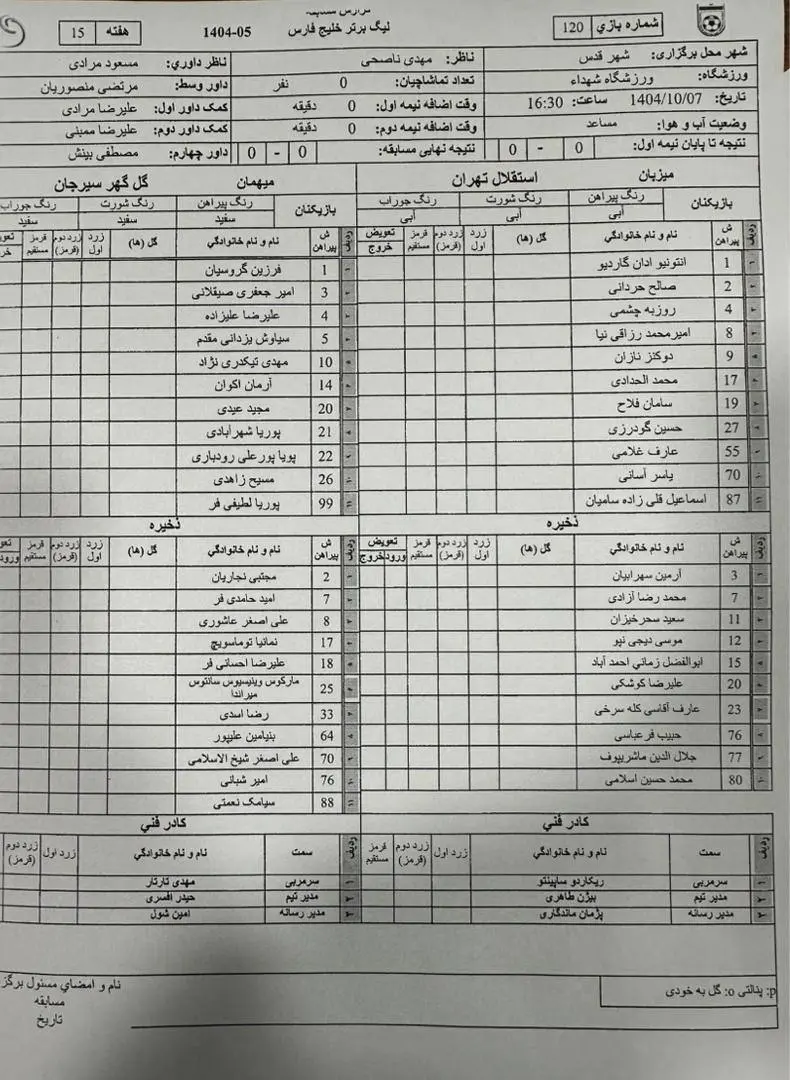 گزارش مسابقه
لیگ برتر خلیج فارس
1404-05
شماره بازي 120
هفته 15
شهر محل برگزاری: شهر قدس
ورزشگاه: ورزشگاه شهداء
تاریخ: 1404/10/07 ساعت: 16:30
وضعیت آب و هوا: مساعد
نتیجه تا پایان نیمه اول: 0 - 0
ناظر: مهدی ناصحی
تعداد تماشاچیان: 0 نفر
وقت اضافه نیمه اول: 0 دقیقه
وقت اضافه نیمه دوم: 0 دقیقه
نتیجه نهایی مسابقه: 0 - 0
ناظر داوري: مسعود مرادی
داور وسط: مرتضی منصوریان
کمک داور اول: علیرضا مرادی
کمک داور دوم: علیرضا ممبنی
داور چهارم: مصطفی بینش
میزبان استقلال تهران
بازیکنان
رنگ پیراهن رنگ شورت رنگ جوراب
آبی آبی آبی
ردیف ش پیراهن نام و نام خانوادگي گل (ها) زرد اول زرد دوم (قرمز) قرمز مستقیم تعویض خروج
1 انتونیو ادان گاردیو
2 صالح حردانی
4 روزبه چشمی
8 امیرمحمد رزاقی نیا
9 دوکنز نازان
17 محمد الحدادی
19 سامان فلاح
27 حسین گودرزی
55 عارف غلامی
70 یاسر آسانی
87 اسماعیل قلی زاده سامیان
ذخیره
ردیف ش پیراهن نام و نام خانوادگي گل (ها) زرد اول زرد دوم (قرمز) قرمز مستقیم تعویض ورود خروج
3 آرمین سهرابیان
7 محمد رضا آزادی
11 سعید سحرخیزان
12 موسی دیجی نپو
15 ابوالفضل زماني احمد آباد
20 علیرضا کوشکی
23 عارف آقاسی کله سرخی
76 حبیب فرعباسی
77 جلال الدین ماشریپوف
80 محمد حسین اسلامی
کادر فني
ردیف سمت نام و نام خانوادگي زرد اول زرد دوم (قرمز) قرمز مستقیم
۱ سرمربی ریکاردو ساپینتو
۲ مدیر تیم بیژن طاهری
۳ مدیر رسانه پژمان ماندگاری
میهمان گل گهر سیرجان
بازیکنان
رنگ پیراهن رنگ شورت رنگ جوراب
سفید سفید سفید
ردیف ش پیراهن نام و نام خانوادگي گل (ها) زرد اول زرد دوم (قرمز) قرمز مستقیم
1 فرزین گروسیان
3 امیر جعفری صیقلانی
4 علیرضا علیزاده
5 سیاوش یزدانی مقدم
10 مهدی تیکدری نژاد
14 آرمان اکوان
20 مجید عیدی
21 پوریا شهرآبادی
22 پویا پورعلی رودباری
26 مسیح زاهدی
99 پوریا لطیفی فر
ذخیره
ردیف ش پیراهن نام و نام خانوادگي گل (ها) زرد اول زرد دوم (قرمز) قرمز مستقیم ورود
2 مجتبی نجاریان
7 امید حامدی فر
8 علی اصغر عاشوری
17 نمانیا توماسویچ
18 علیرضا احسانی فر
25 مارکوس وینیسیوس سانتوس میراندا
33 رضا اسدی
64 بنیامین علیپور
70 علی اصغر شیخ الاسلامی
76 امیر شبانی
88 سیامک نعمتی
کادر فني
ردیف سمت نام و نام خانوادگي زرد اول زرد دوم (قرمز)
۱ سرمربی مهدی تارتار
۲ مدیر تیم حیدر افسری
۳ مدیر رسانه امین شول
p: پنالتی o: گل به خودی
نام و امضاي مسئول
مسابقه
تاریخ